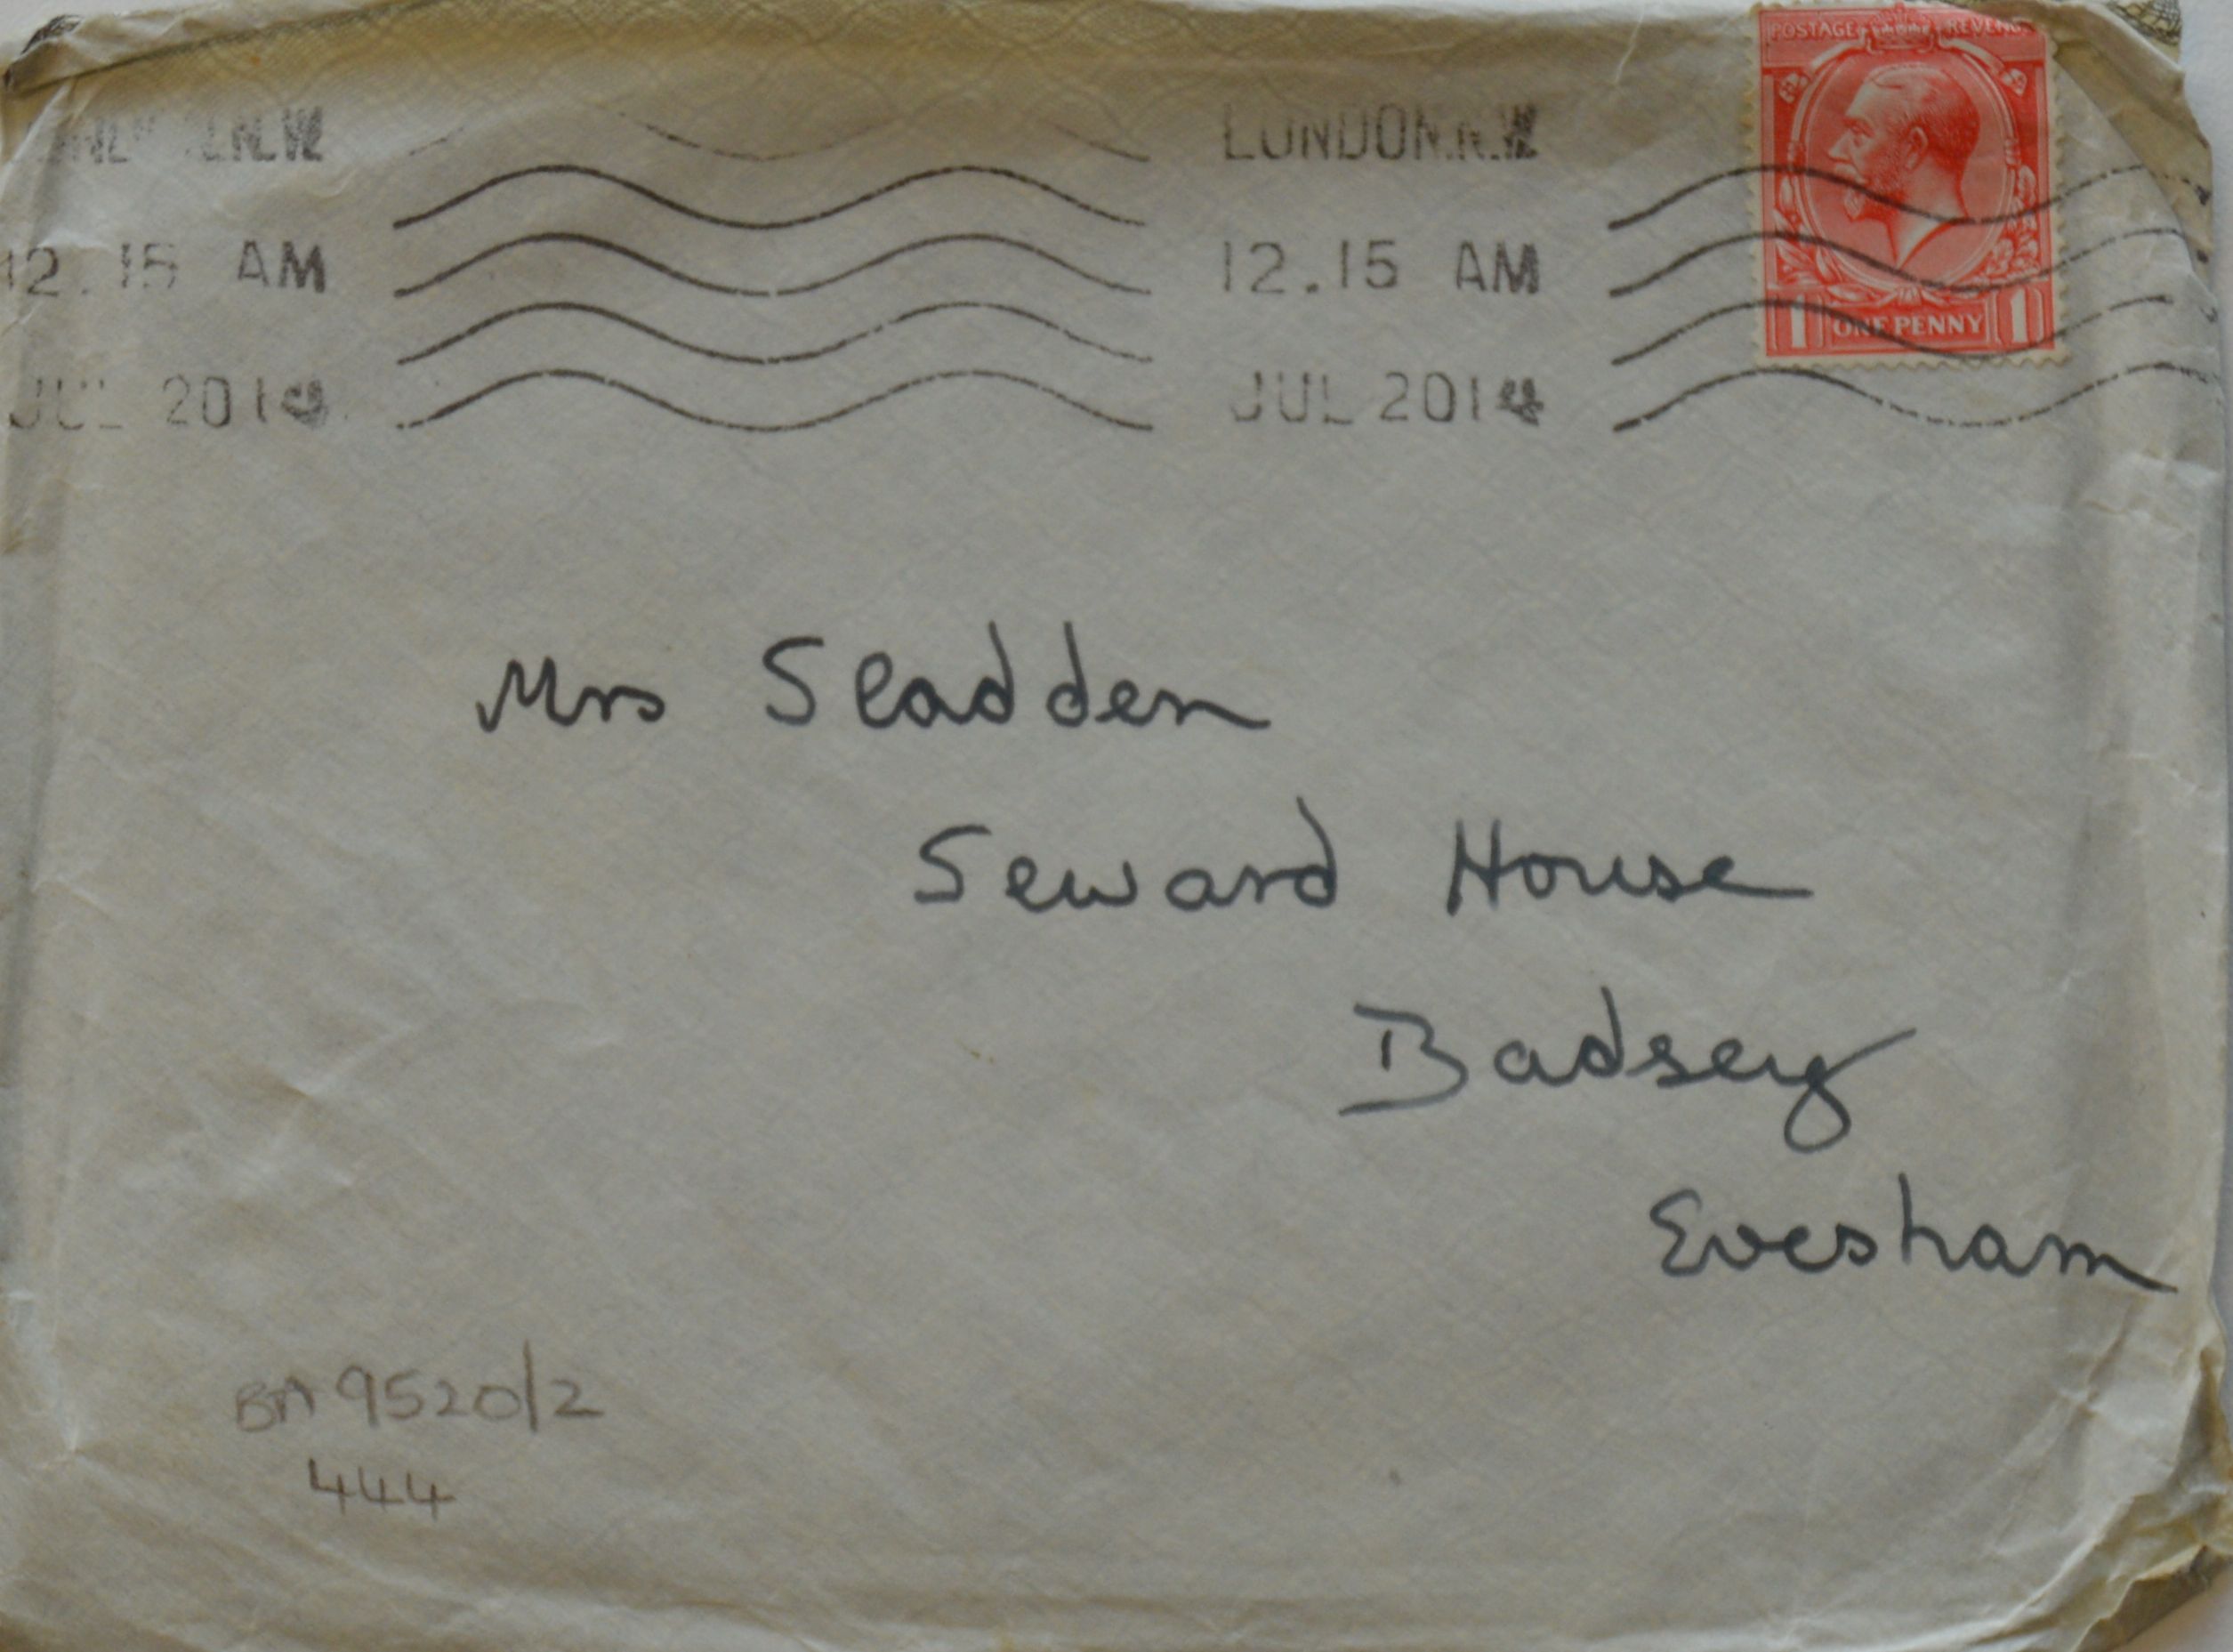 LONDON.N.W
12.15 AM
JUL 20 14
POSTAGE REVENUE
1 ONE PENNY 1
LONDON.N.W
12.15 AM
JUL 20 1
Mrs Sladden
Seward House
Badsey
Evesham
BA 9520/2
444